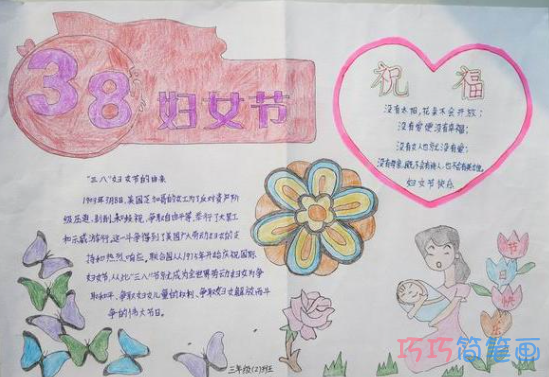 38 妇女节
"三八"妇女节的由来
1909年3月8日,美国芝加哥的女工为了反对资产阶
级压迫、剥削、和歧视,争取自由平等,举行了大罢工
和示威游行,这一斗争得到了美国广大劳动妇女的支
持和热烈响应。联合国从1975年开始庆祝国际
妇女节,从此"三八"节就成为全世界劳动妇女为争
取和平、争取妇女儿童的权利、争取妇女解放而斗
争的伟大节日。
三年级(2)班
祝福
没有太阳,花朵不会开放;
没有爱便没有幸福;
没有女人也就没有爱;
没有母亲,既不会有诗人,也不会有英雄。
妇女节快乐
节日快乐
巧巧简笔画